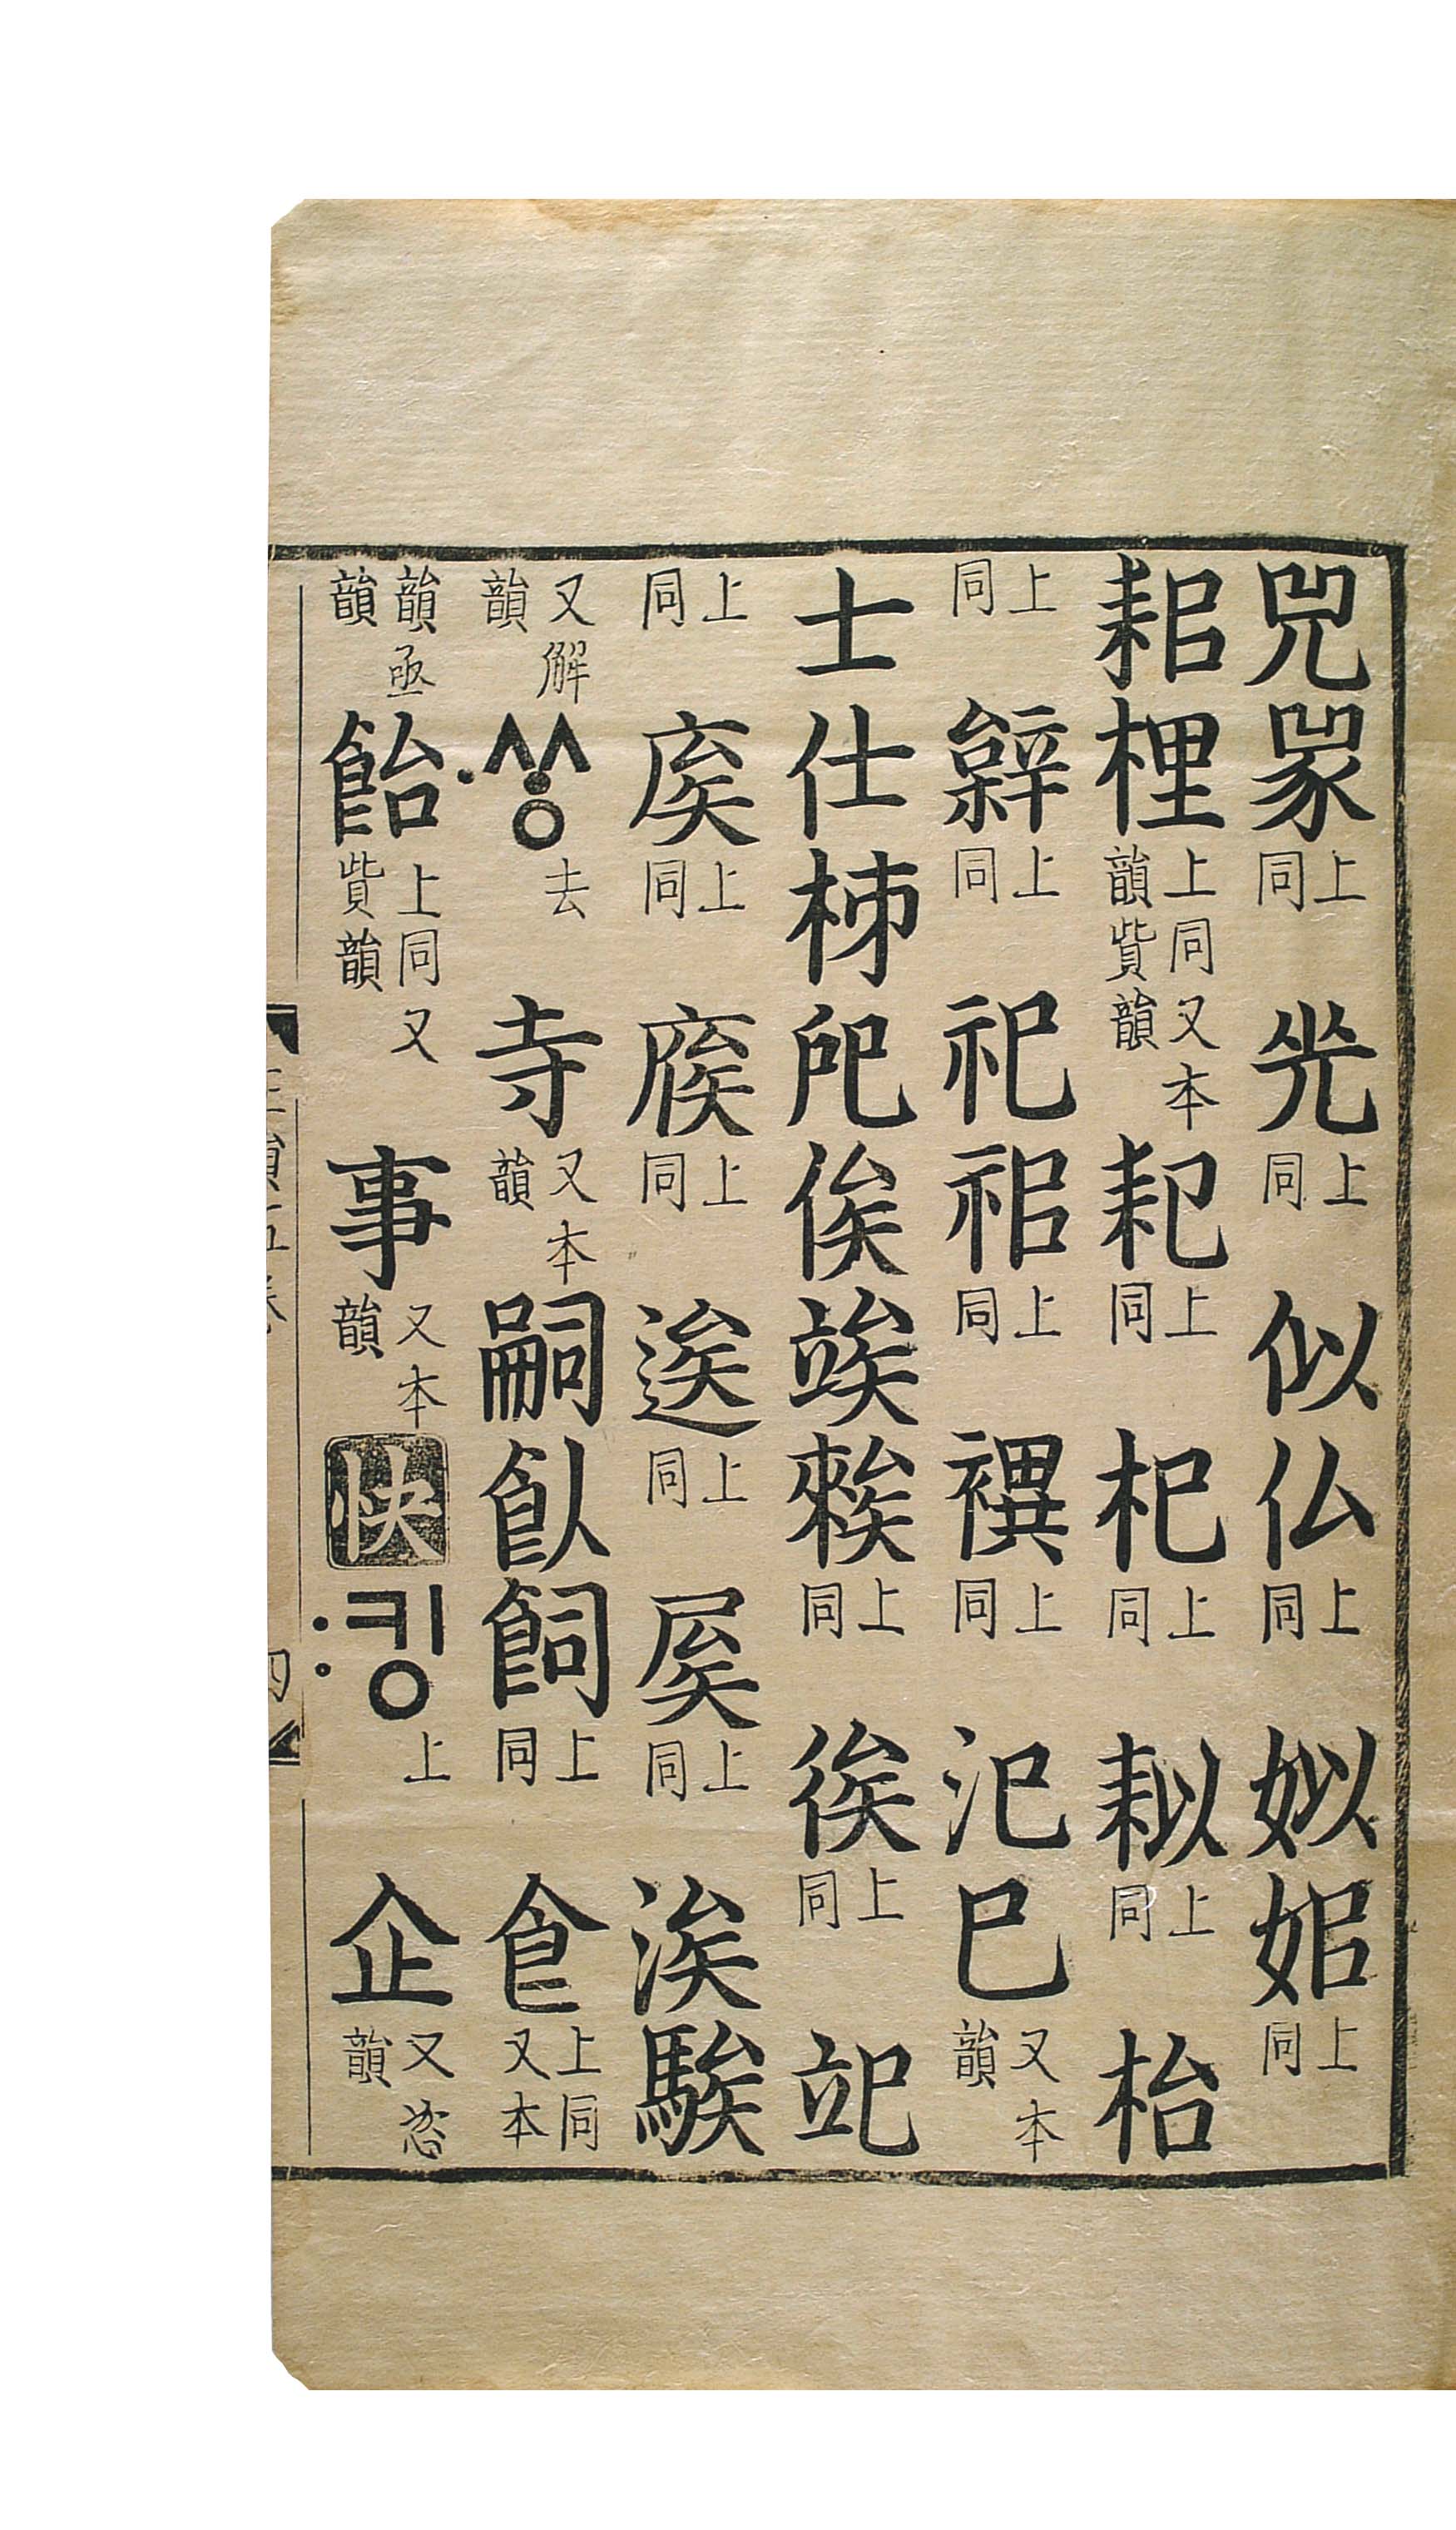 上同 上同 似 仏 上同 姒 上同
耜 梩 上同又本韻貲韻 上同 上同 上同 枱
上同 上同 祀 上同 禩 上同 汜 巳 又本韻
士 仕 柹 戺 俟 竢 上同 上同
上同 上同 上同 上同 上同 涘 騃
又解韻 ᄊᆞᆼ〮 去 寺 又本韻 嗣 飤 飼 上同 食 上同又本
韻亟韻 飴 上同又貲韻 事 又本韻 快 킹〯 上 企 又恣韻